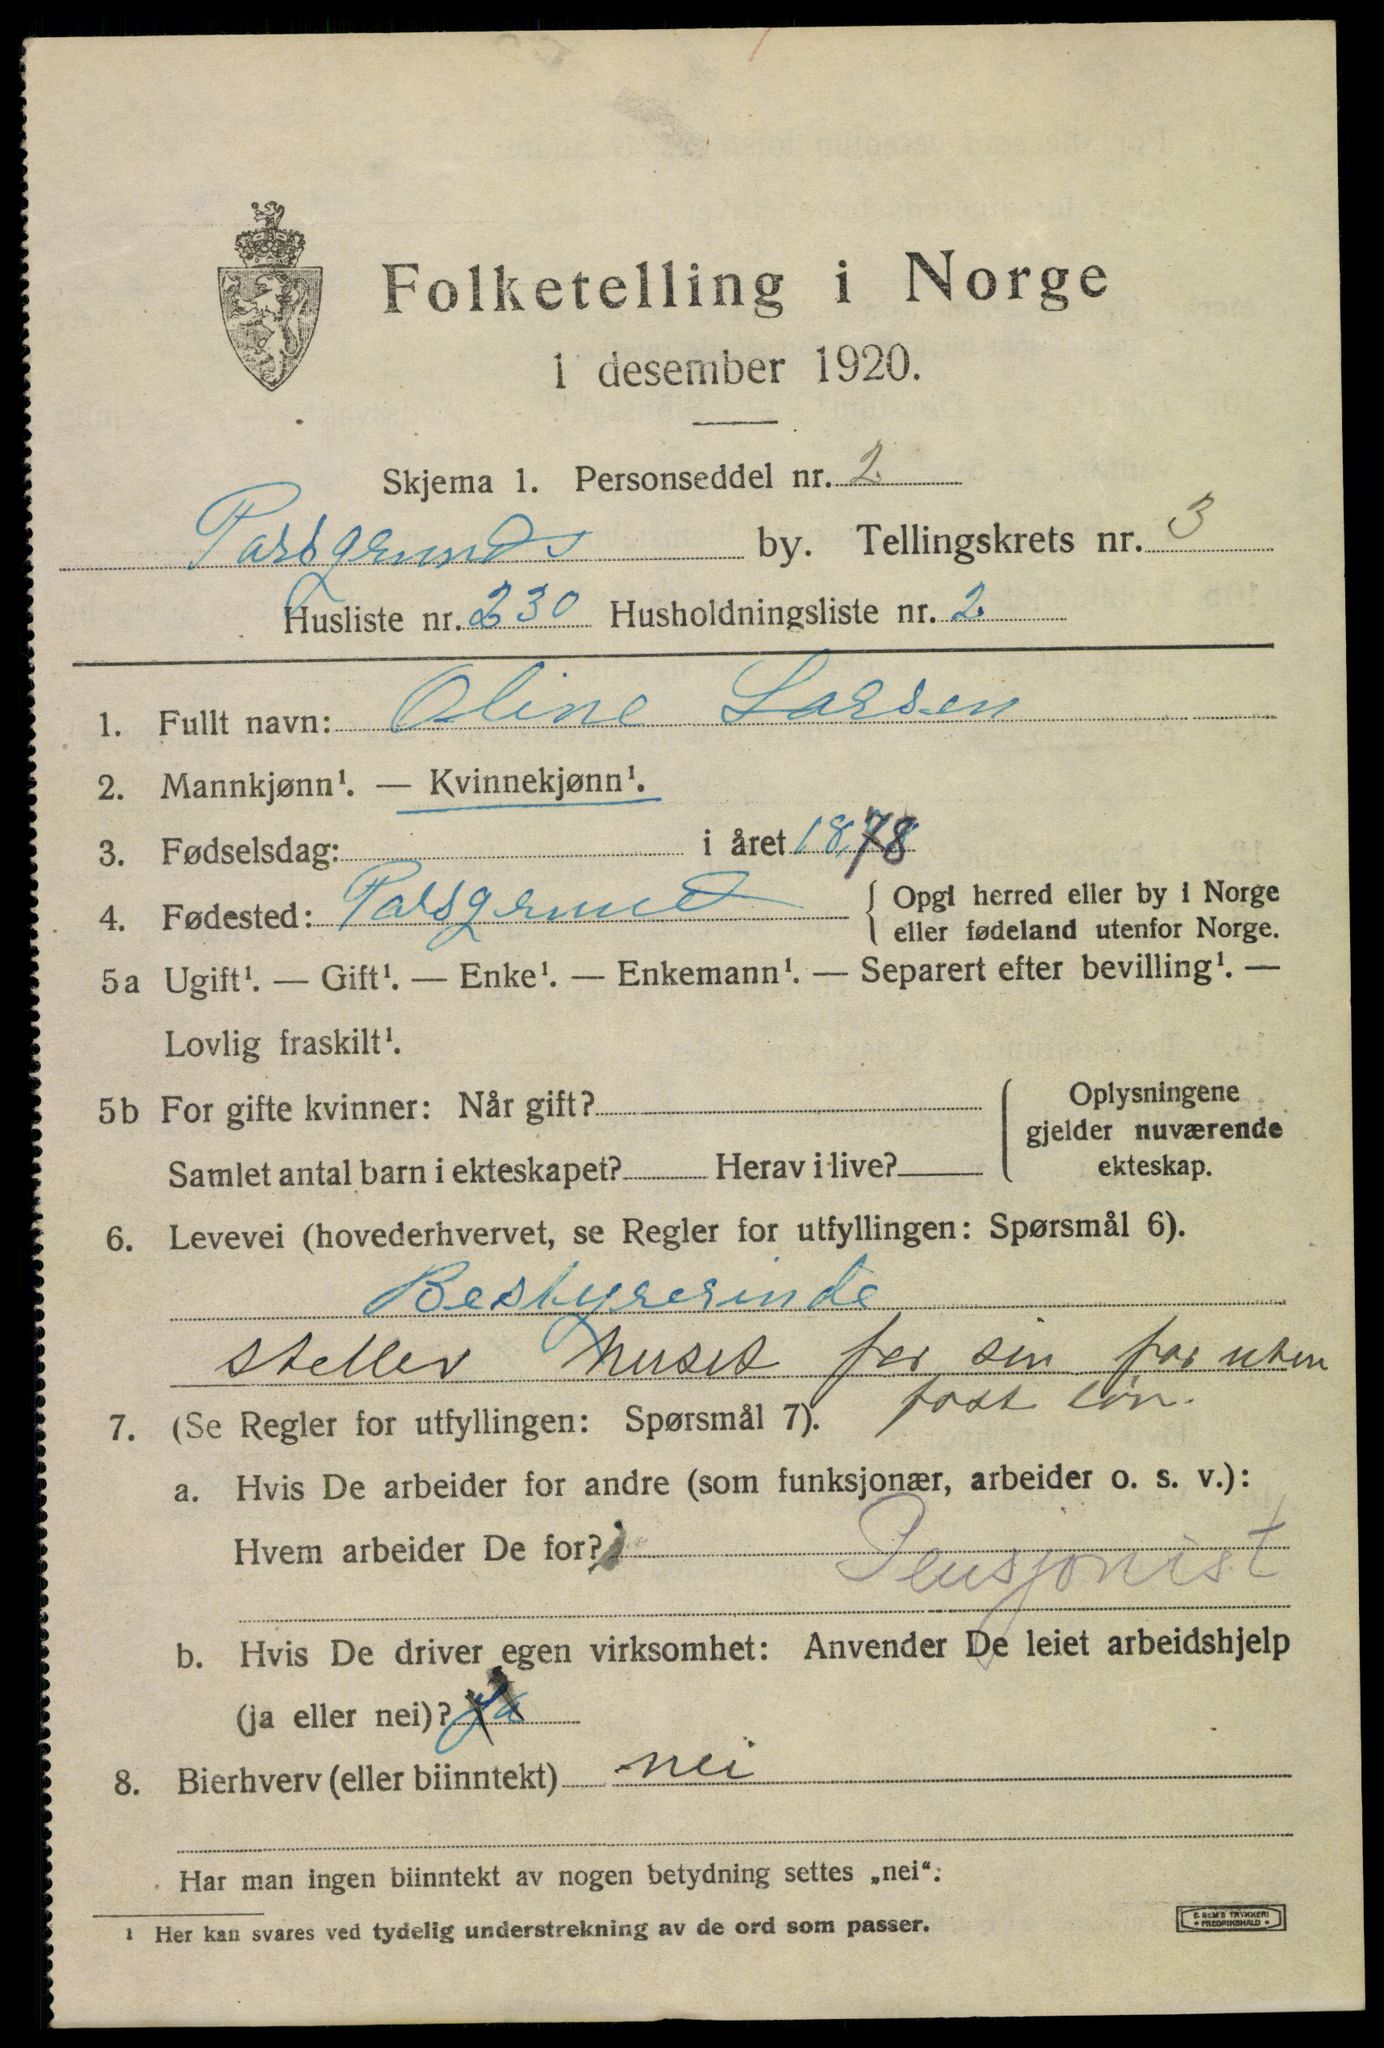 Folketelling i Norge
1 desember 1920.
Skjema 1. Personseddel nr. 2.
Porsgrunds by. Tellingskrets nr. 3
Husliste nr. 230 Husholdningsliste nr. 2.
1. Fullt navn: Oline Larsen
2. Mannkjønn¹. — Kvinnekjønn¹.
3. Fødselsdag: i året 1878
4. Fødested: Porsgrund { Opgi herred eller by i Norge
eller fødeland utenfor Norge.
5a Ugift¹. — Gift¹. — Enke¹. — Enkemann¹. — Separert efter bevilling¹. —
Lovlig fraskilt¹.
5b For gifte kvinner: Når gift? { Oplysningene
gjelder nuværende
Samlet antal barn i ekteskapet? Herav i live? ekteskap.
6. Levevei (hovederhvervet, se Regler for utfyllingen: Spørsmål 6).
Bestyrerinde
steller huset for sin far uten
fast løn.
7. (Se Regler for utfyllingen: Spørsmål 7).
a. Hvis De arbeider for andre (som funksjonær, arbeider o. s. v.):
Hvem arbeider De for? Pensjonist
b. Hvis De driver egen virksomhet: Anvender De leiet arbeidshjelp
(ja eller nei)? Ja
8. Bierhverv (eller biinntekt) nei
Har man ingen biinntekt av nogen betydning settes „nei“:
¹ Her kan svares ved tydelig understrekning av de ord som passer.
E. SEM'S TRYKKERI
FREDRIKSHALD